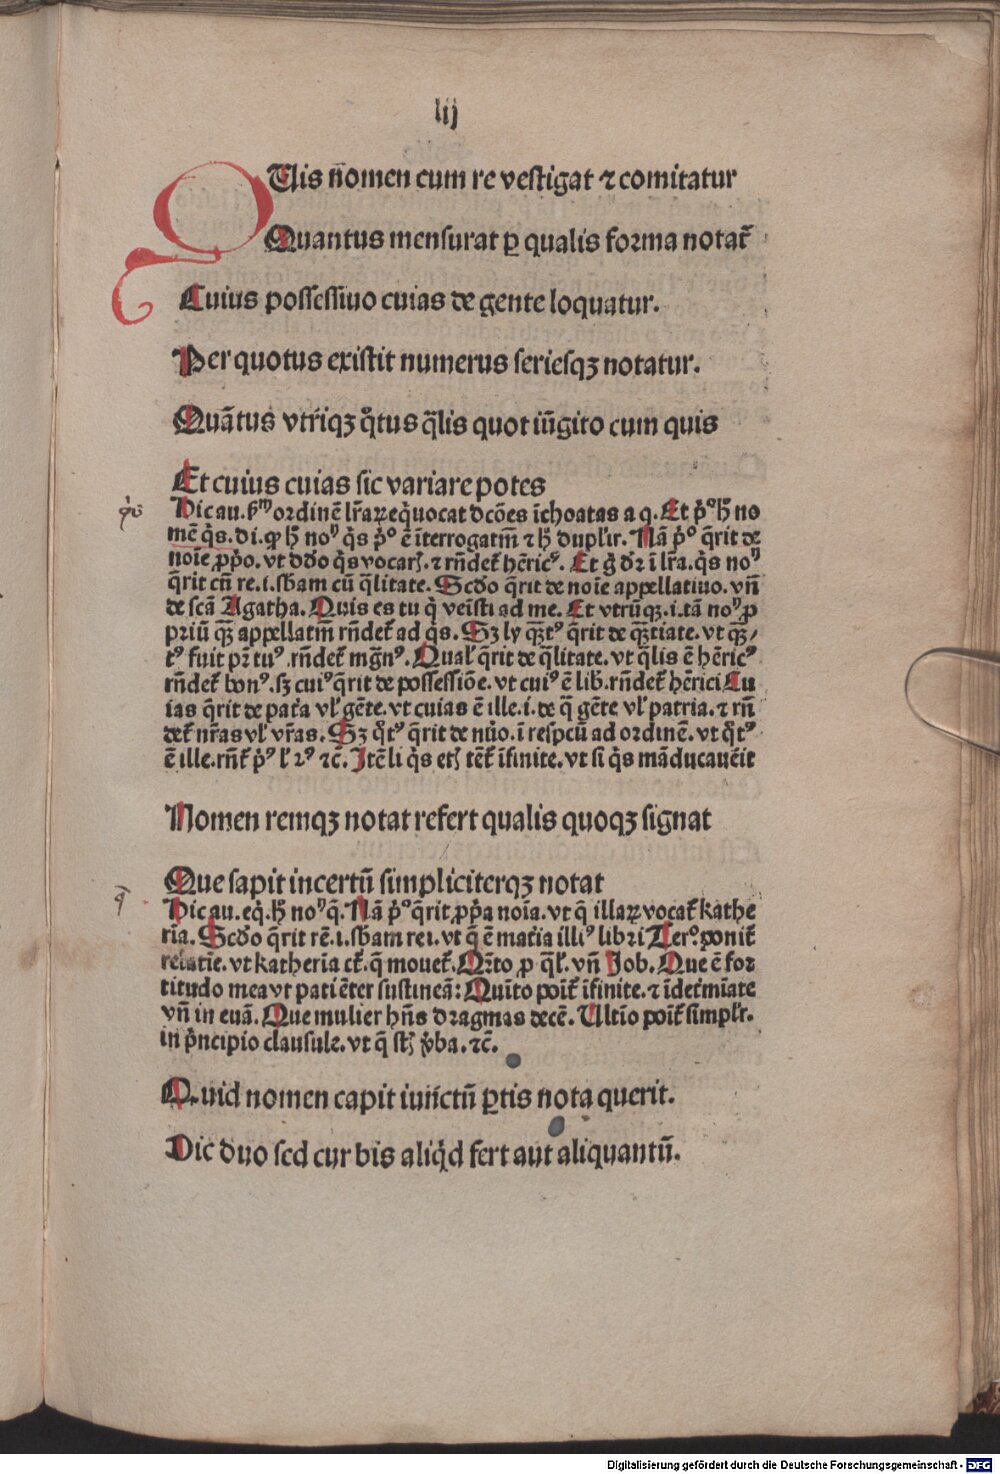 lij
QUis nomen cum re vestigat ⁊ comitatur
Quantus mensurat ꝑ qualis forma notat̄
Cuius possessiuo cuias de gente loquatur.
Per quotus existit numerus seriesqꝫ notatur.
Quātus vtriqꝫ qͥtus q̄lis quot iūgito cum quis
Et cuius cuias sic variare potes
Hic au. ẜm ordinē lr̄aꝝ eq̇uocat dc̄ōes īchoatas a q. Et p̄ᵒ hꝰ no
mē q̇s. di. ꝙ hꝰ noꝰ q̇s p̄ᵒ ē īterrogatm̄ ⁊ hꝫ duplr̄. Nā p̄ᵒ q̄rit de
noīe ꝓpo. vt ddo q̇s vocaꝛꝭ. ⁊ rn̄det̄ hēricꝰ. Et ġ dr̄ ī lr̄a. q̇s noꝰ
q̄rit cū re. i. sb̄am cū q̄litate. Scd̄o q̄rit de noīe appellatiuo. vn̄
de scā Agatha. Quis es tu q̇ veīsti ad me. Et vtrūqꝫ. i. tā noꝰ ꝓ
priū qꝫ̄ appellatm̄ rn̄det̄ ad q̇s. Sꝫ ly qꝫ̄tꝰ q̄rit de qꝫ̄titate. vt qꝫ̄/
tꝰ fuit pr̄ tuꝰ. rn̄det̄ mḡnꝰ. Qual̓ q̄rit de q̄litate. vt q̄lis ē hēricꝰ
rn̄det̄ bonꝰ. sꝫ cuiꝰ q̄rit de possessiōe. vt cuiꝰ ē lib̄. rn̄det̄ hērici Cu
ias q̄rit de patr̄a vl̓ gēte. vt cuias ē ille. i. de q̄ gēte vl̓ patria. ⁊ rn̄
det̄ nr̄as vl̓ vr̄as. Sꝫ qͦtꝰ q̄rit de nūo. ī respcū ad ordinē. vt qͦtꝰ
ē ille. rn̄t̄ p̄ꝰ l̓ 2ꝰ ⁊c̄. Itē li q̇s etꝫ tēt̄ īfinite. vt si q̇s māducauēit
Nomen remqꝫ notat refert qualis quoqꝫ signat
Que sapit incertū simpliciterqꝫ notat
Hic au. eq̇. hꝰ noꝰ q̄. Nā p̄ᵒ q̄rit ꝓpa noīa. vt q̄ illaꝝ vocat̄ kathe
rīa. Scd̄o q̄rit rē. i. sb̄am rei. vt q̄ ē mat̄ia illiꝰ libri Terᵒ. ponit̄
relatīe. vt katherīa ct̄. q̄ mouet̄. Qr̄to ꝓ q̄l̓. vn̄ Job. Que ē for
titudo mea vt patiēter sustineā: Quīto poīt̄ īfinite. ⁊ īdet̄mīate
vn̄ in euā. Que mulier hn̄s dragmas decē. Vltīo poīt̄ simplr̄.
in p̄ncipio clausule. vt q̄ stꝫ v̄ba. ⁊c̄.
Quid nomen capit iunctū ꝑtis nota querit.
Dic duo sed cur bis aliq̇d fert aut aliquantū.
Digitalisierung gefördert durch die Deutsche Forschungsgemeinschaft - DFG